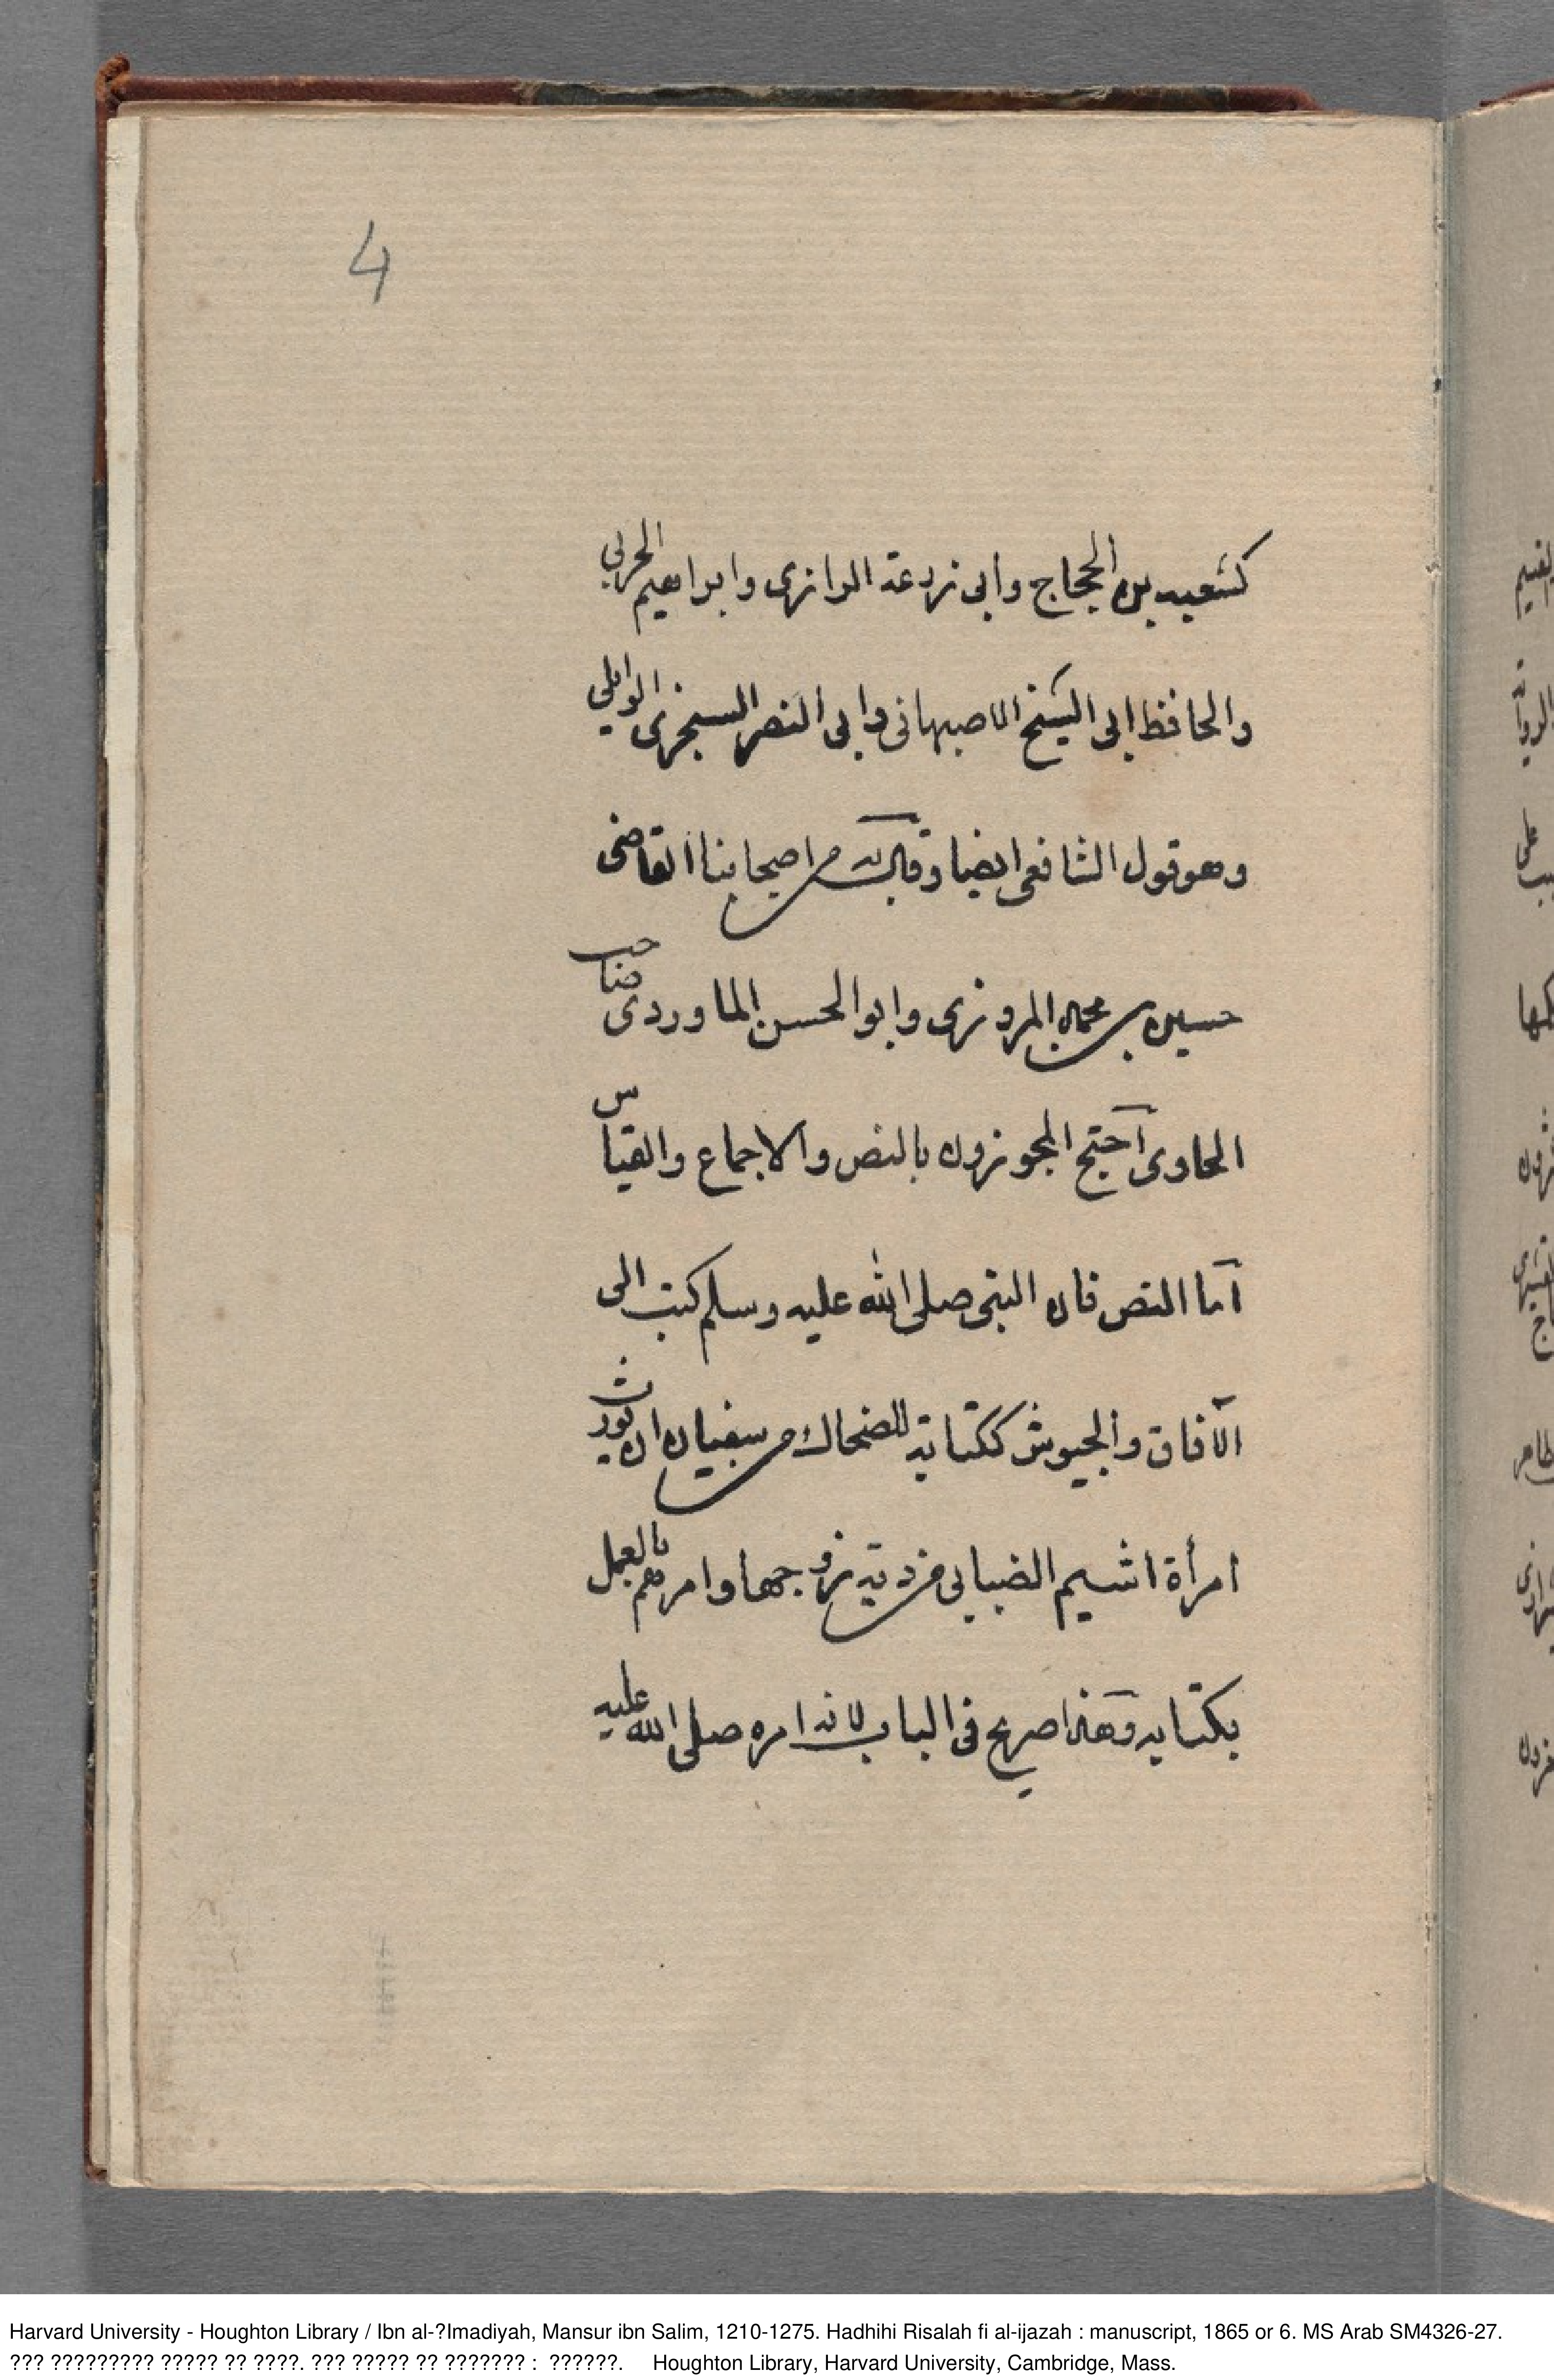 4
كشعبه بن الحجاج وابى زرعة الرازى وابراهيم الحربي
والحافظ ابى الشيخ الاصبهانى وابى النصر السجزى الوايلي
وهو قول الشافعى ايضا وقال به من اصحابنا القاضى
حسين بن محمد المروزى وابو الحسن الماوردى صاحب
الحاوى احتج المجوزون بالنص والاجماع والقياس
اما النص فان النبى صلى الله عليه وسلم كتب الى
الآفاق والجيوش ككتابة للضحاك بن سفيان ان يورث
امرأة اشيم الضبابى من دية زوجها وامرهم بالعمل
بكتابه وهذا صريح فى الباب لانه امره صلى الله عليه
Harvard University - Houghton Library / Ibn al-?Imadiyah, Mansur ibn Salim, 1210-1275. Hadhihi Risalah fi al-ijazah : manuscript, 1865 or 6. MS Arab SM4326-27.
??? ????????? ????? ?? ????. ??? ????? ?? ??????? : ??????. Houghton Library, Harvard University, Cambridge, Mass.